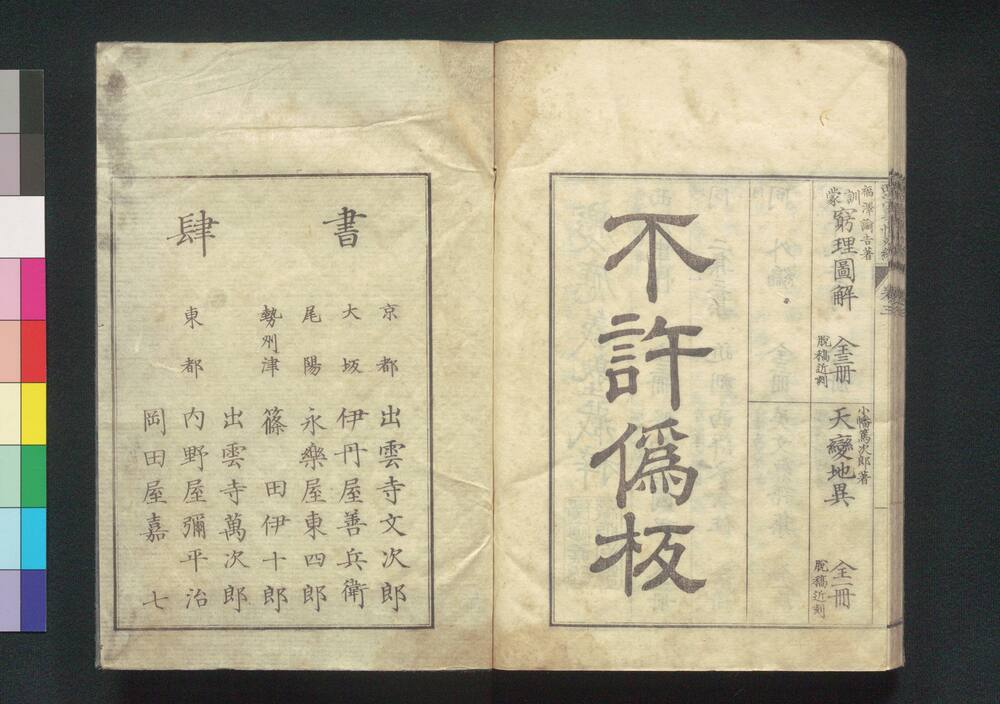 福澤諭吉著
訓蒙窮理圖解
全三冊
脫稿近刻
小幡篤次郎著
天變地異
全一冊
脫稿近刻
不許偽板
書肆
京都 出雲寺文次郎
大坂 伊丹屋善兵衛
尾陽 永樂屋東四郎
勢州津 篠田伊十郎
東都 出雲寺萬次郎
内野屋彌平治
岡田屋嘉七